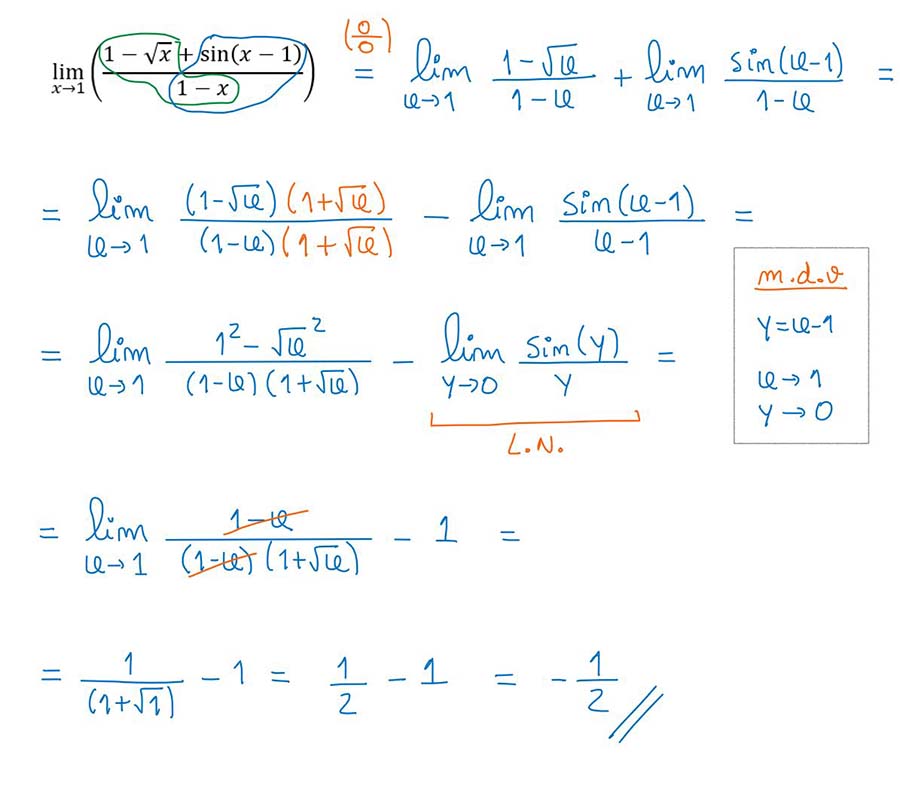 lim x→1 ( (1 − √x + sin(x − 1)) / (1 − x) ) (0/0) = lim x→1 (1−√x)/(1−x) + lim x→1 sin(x−1)/(1−x) =
= lim x→1 ((1−√x)(1+√x))/((1−x)(1+√x)) − lim x→1 sin(x−1)/(x−1) =
m.d.v
y=x−1
x→1
y→0
= lim x→1 (1² − √x²)/((1−x)(1+√x)) − lim y→0 sin(y)/y =
L.N.
= lim x→1 (1−x)/((1−x)(1+√x)) − 1 =
= 1/(1+√1) − 1 = 1/2 − 1 = −1/2 //